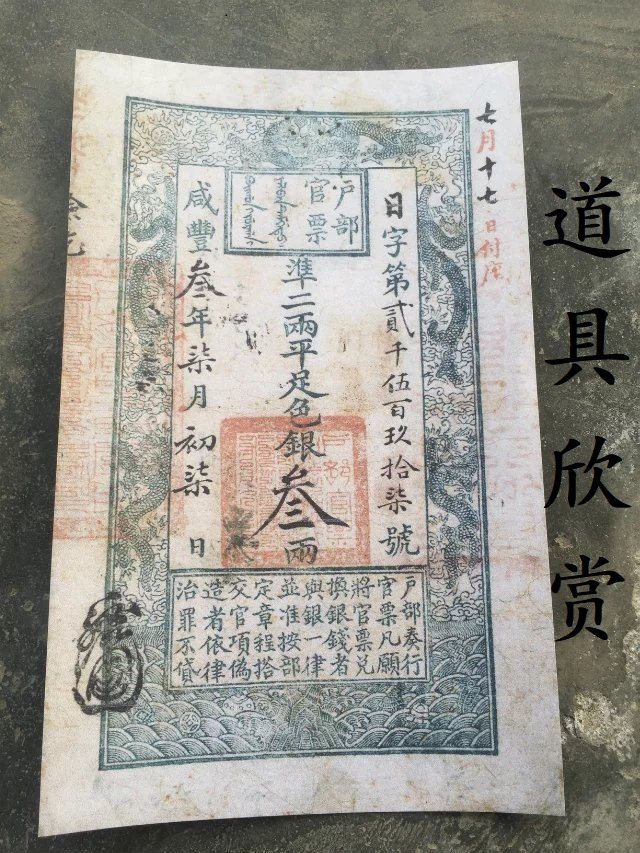 七月十七日付
戶部
官票
日字第貳千伍百玖拾柒號
準二兩平足色銀叁兩
咸豐叁年柒月初柒日
戶部奏行
官票凡願
將官票兌
換銀錢者
與銀一律
並准按部
定章程搭
交官項偽
造者依律
治罪不貸
道具欣赏